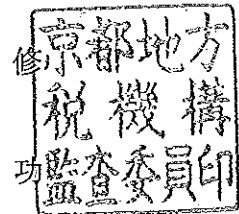 修
京都地方
税機構
功
監査委員印